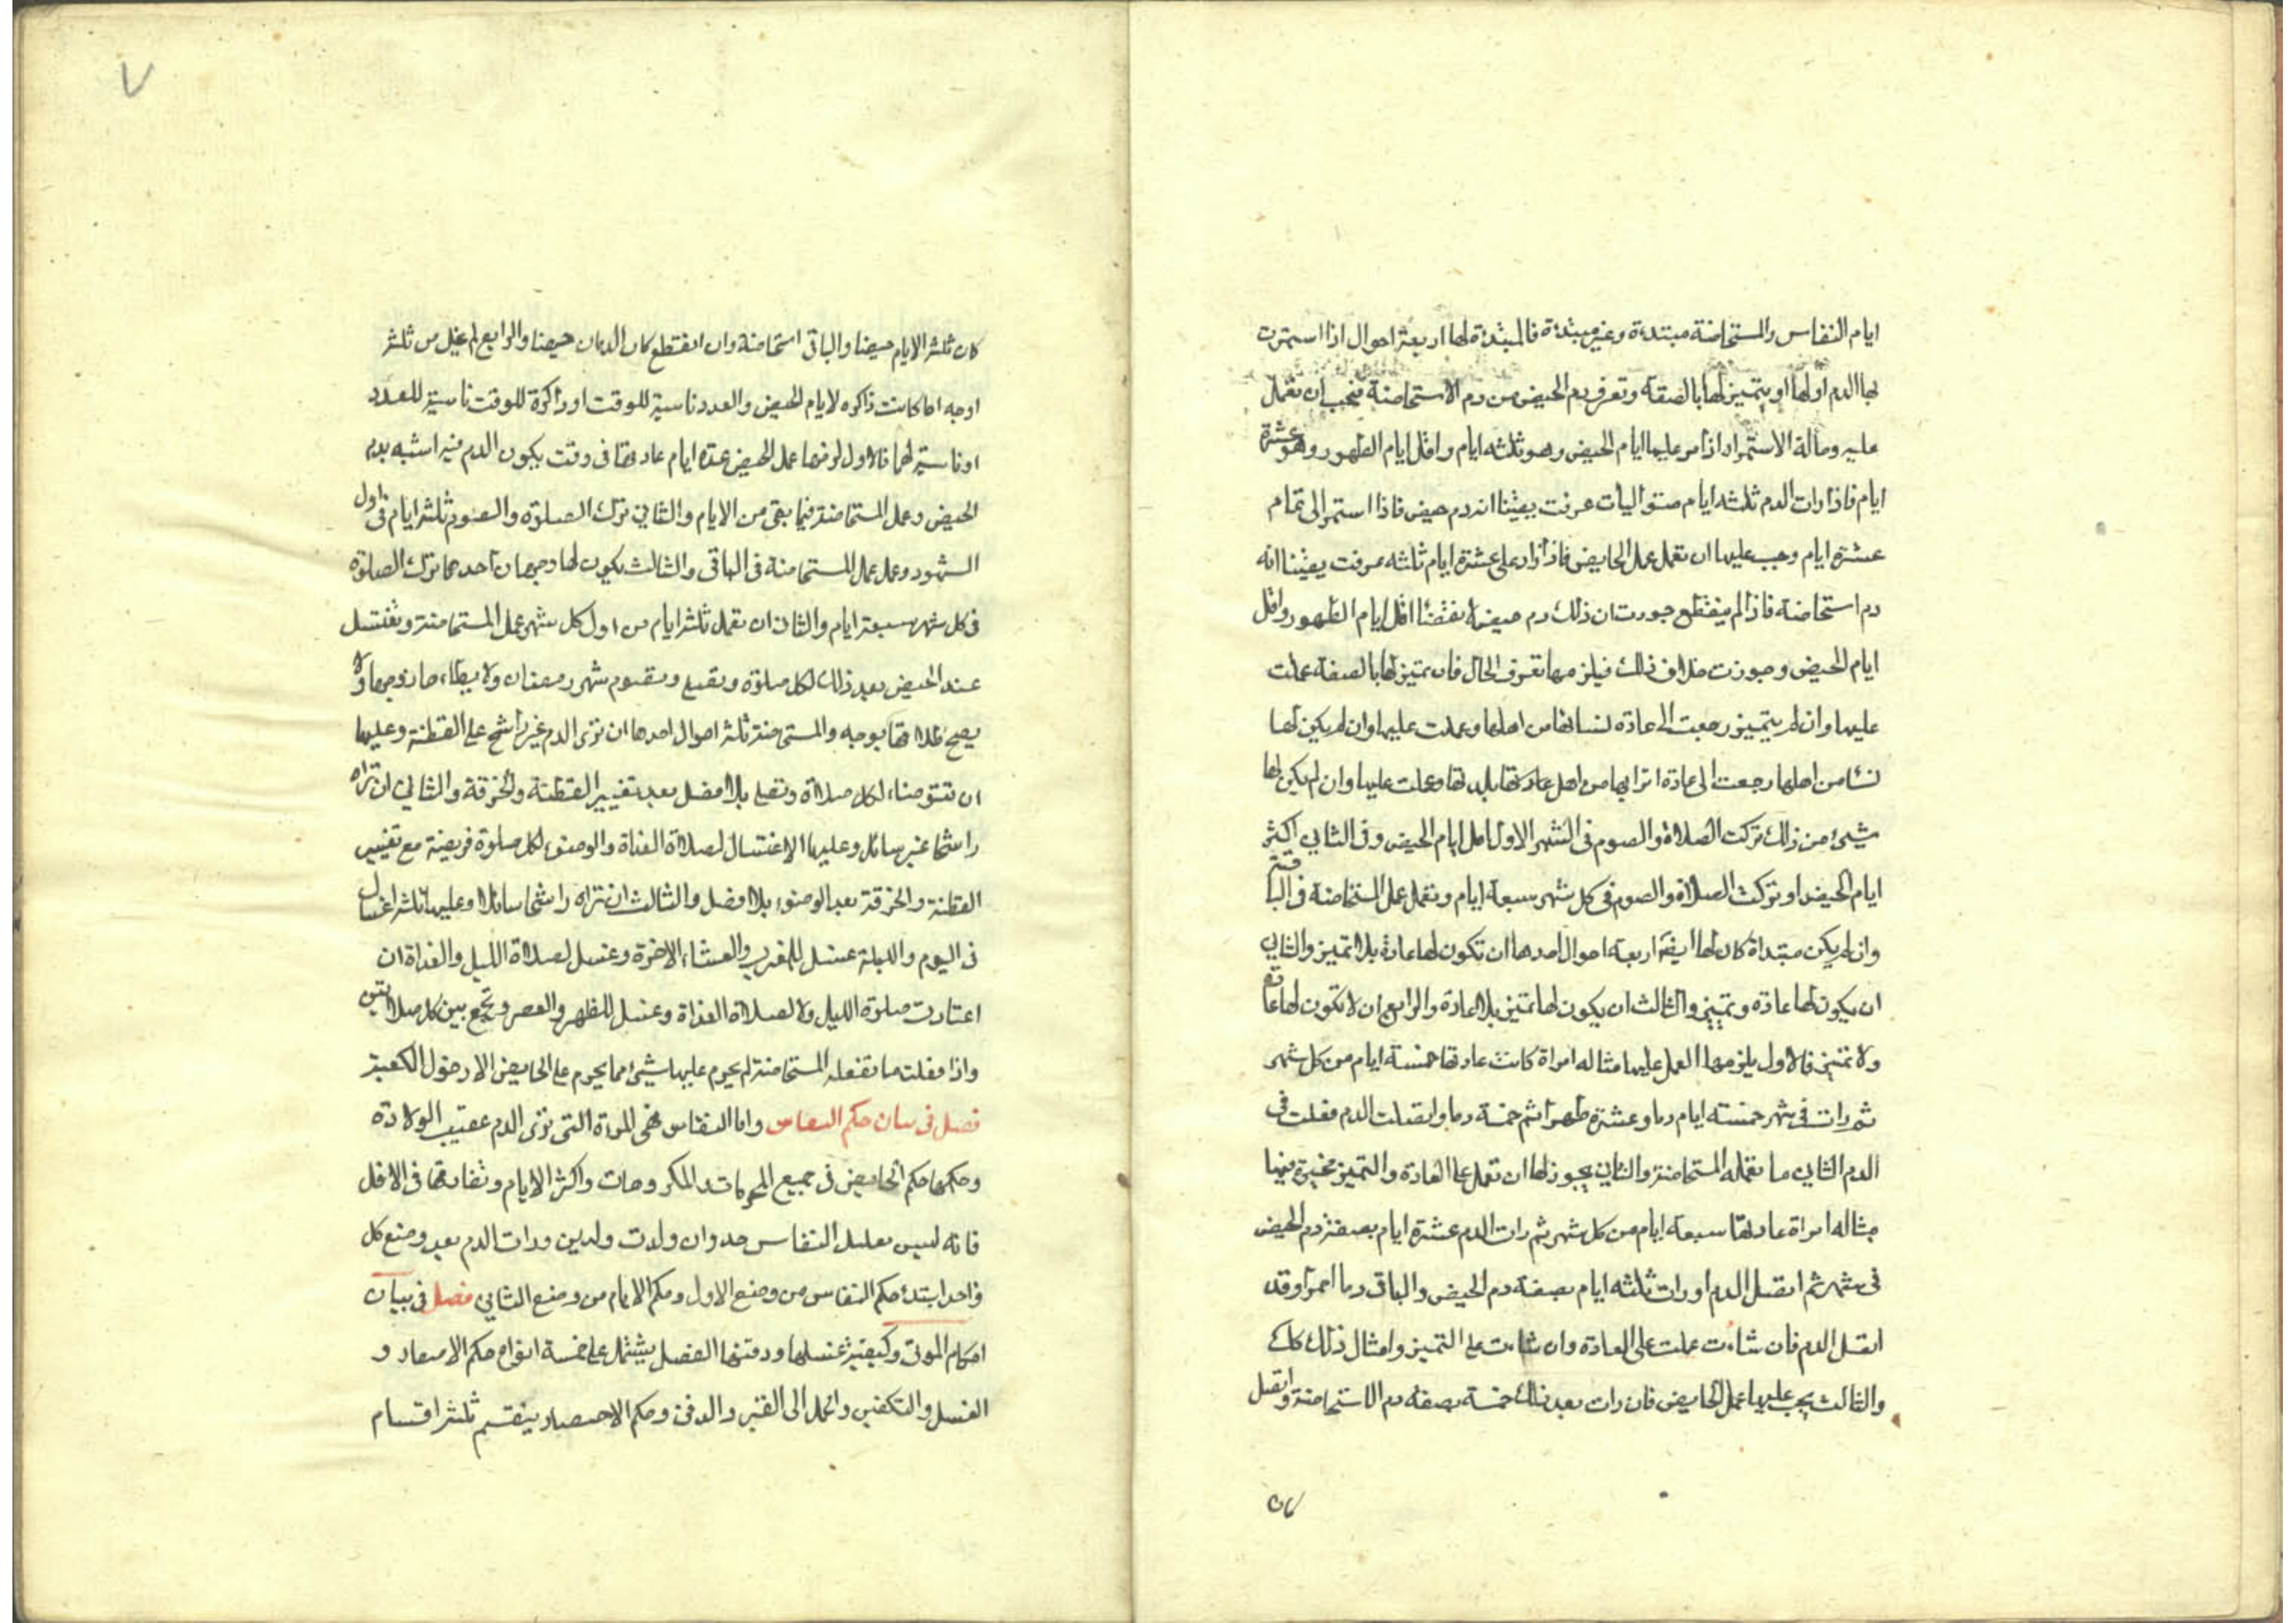 ايام النفاس والمستحاضة مبتدءة وغير مبتدءة فالمبتدءة لها اربعة احوال اذا استمرت
بها الدم اولها او يتميز لها بالصفة وتعرف دم الحيض من دم الاستحاضة فيجب ان تعمل
عليه وحالة الاستمرار اذا مر عليها ايام الحيض وهو ثلثه ايام واقل ايام الطهور وهو عشرة
ايام فاذا رات الدم ثلثه ايام متواليات عرفت يقينا انه دم حيض فاذا استمر الى تمام
عشرة ايام وجب عليها ان تعمل عمل الحايض فاذا زاد على عشرة ايام ثلثه عرفت يقينا انه
دم استحاضة فاذا لم ينقطع جوزت ان ذلك دم حيض نقضا اقل ايام الطهور واقل
ايام الحيض وجوزت خلاف ذلك فيلزمها تعرف الحال فان تميز لها بالصفة عملت
عليها وان لم يتميز رجعت الى عادة نسائها من اهلها وعملت عليها وان لم يكن لها
نسا من اهلها رجعت الى عادة اترابها من اهل بلدتها وعملت عليها وان لم يكن لها
شيئ من ذلك تركت الصلاة والصوم فى الشهر الاول اقل ايام الحيض وفى الثانى اكثر
ايام الحيض او تركت الصلاة والصوم فى كل شهر سبعة ايام وتعمل عمل المستحاضة فى الباقية
وان لم يكن مبتداة كان لها ايضا اربعة احوال احدها ان تكون لها عادة بلا تميز والثانى
ان يكون لها عادة وتميز والثالث ان يكون لها تميز بلا عادة والرابع ان لا تكون لها عادة
ولا تميز فالاول يلزمها العمل عليها مثاله امراة كانت عادتها خمسة ايام من كل شهر
ثم رات فى شهر خمسته ايام دما وعشرة طهرا ثم خمسة دما واتصلت الدم فعلت فى
الدم الثانى ما تفعله المستحاضة والثانى يجوز لها ان تعمل على العادة والتميز مخيرة فيها
مثاله امراة عادتها سبعة ايام من كل شهر ثم رات الدم عشرة ايام بصفة دم الحيض
فى شهر ثم اتصل الدم او رات ثلثه ايام بصفة دم الحيض والباقى دما احمرا وقد
اتصل الدم فان شاءت عملت على العادة وان شاءت على التميز وامثال ذلك كذلك
والثالث يجب عليها عمل الحايض فان رات بعد ذلك خمسة بصفة دم الاستحاضة واتصل
كان
٧
كان ثلثة الايام حيضا والباقى استحاضة وان انقطع كان الدمان حيضا والرابع لم يخل من ثلثة
اوجه اما كانت ذاكره لايام الحيض والعدد ناسية للوقت او ذاكرة للوقت ناسية للعدد
او ناسية لهما فالاول لو فيها عمل الحيض عدة ايام عادتها فى وقت يكون الدم فيه اشبه بدم
الحيض وعمل المستحاضة فيما بقى من الايام والثانى ترك الصلوة والصوم ثلثة ايام فى اول
الشهور وعمل عمل المستحاضة فى الباقى والثالث يكون لها وجهان احدهما ترك الصلوة
فى كل شهر سبعة ايام والثانى ان تعمل ثلثة ايام من اول كل شهر عمل المستحاضة وتغتسل
عند الحيض بعد ذلك لكل صلوة وتصلى وتصوم شهر رمضان ولا يطاءها زوجها ولا
يصح طلاقها بوجه والمستحاضة ثلثة احوال احدها ان ترى الدم غير راشح على القطنة وعليها
ان تتوضاء لكل صلاة وتصلى بلا فصل بعد تغيير القطنة والخرقة والثانى ان تراه
راشحا غير سائل وعليها الاغتسال لصلاة الغداة والوضوء لكل صلوة فريضة مع تغيير
القطنة والخرقة بعد الوضوء بلا فصل والثالث ان تراه راشحا سائلا وعليها ثلثة اغسال
فى اليوم والليلة غسل للمغرب والعشاء الاخرة وغسل لصلاة الليل والغداة ان
اعتادت صلوة الليل والا لصلاة الغداة وغسل للظهر والعصر وتجمع بين كل صلاتين
واذا فعلت ما تفعله المستحاضة لم يحرم عليها شيئ مما يحرم على الحايض الا دخول الكعبة
فصل فى بيان حكم النفاس واما النفاس فهى المرءة التى ترى الدم عقيب الولادة
وحكمها حكم الحايض فى جميع المحرمات والمكروهات واكثر الايام وتفارقها فى الاقل
فانه ليس لقليل النفاس حد وان ولدت ولدين ورات الدم بعد وضع كل
واحد ابتدء حكم النفاس من وضع الاول وحكم الايام من وضع الثانى فصل فى بيان
احكام الموتى وكيفية غسلها ودفنها الفصل يشتمل على خمسة انواع حكم الاحتضار و
الغسل والتكفين والحمل الى القبر والدفن وحكم الاحتضار ينقسم ثلثة اقسام